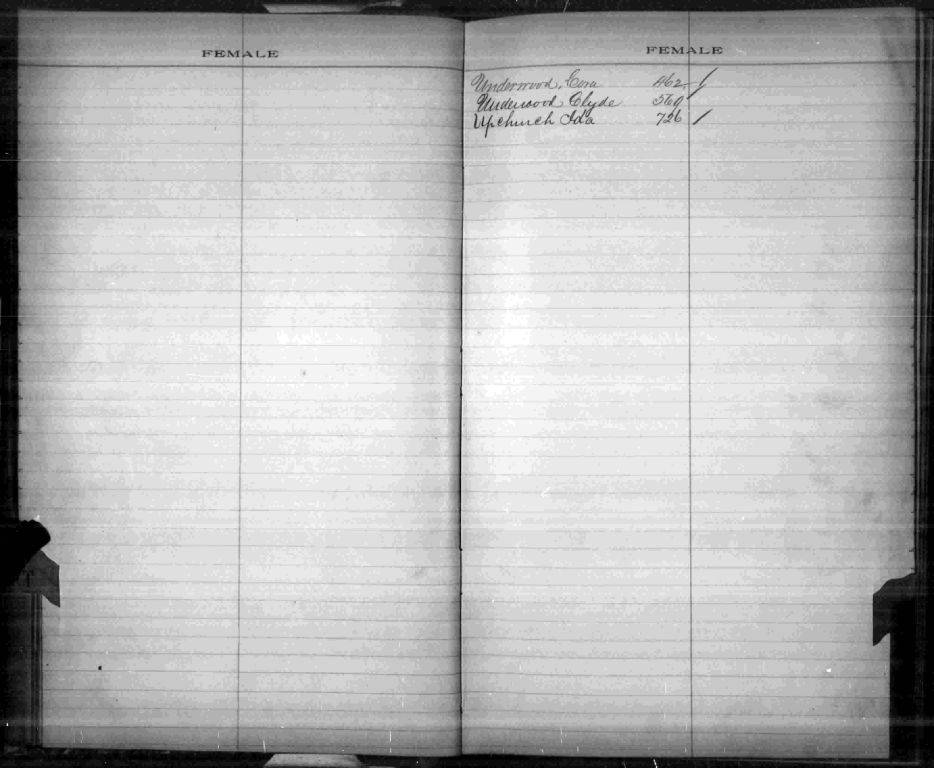 FEMALE
FEMALE
Underwood, Cora 462 /
Underwood Clyde 560
Upchurch Ida 726 /